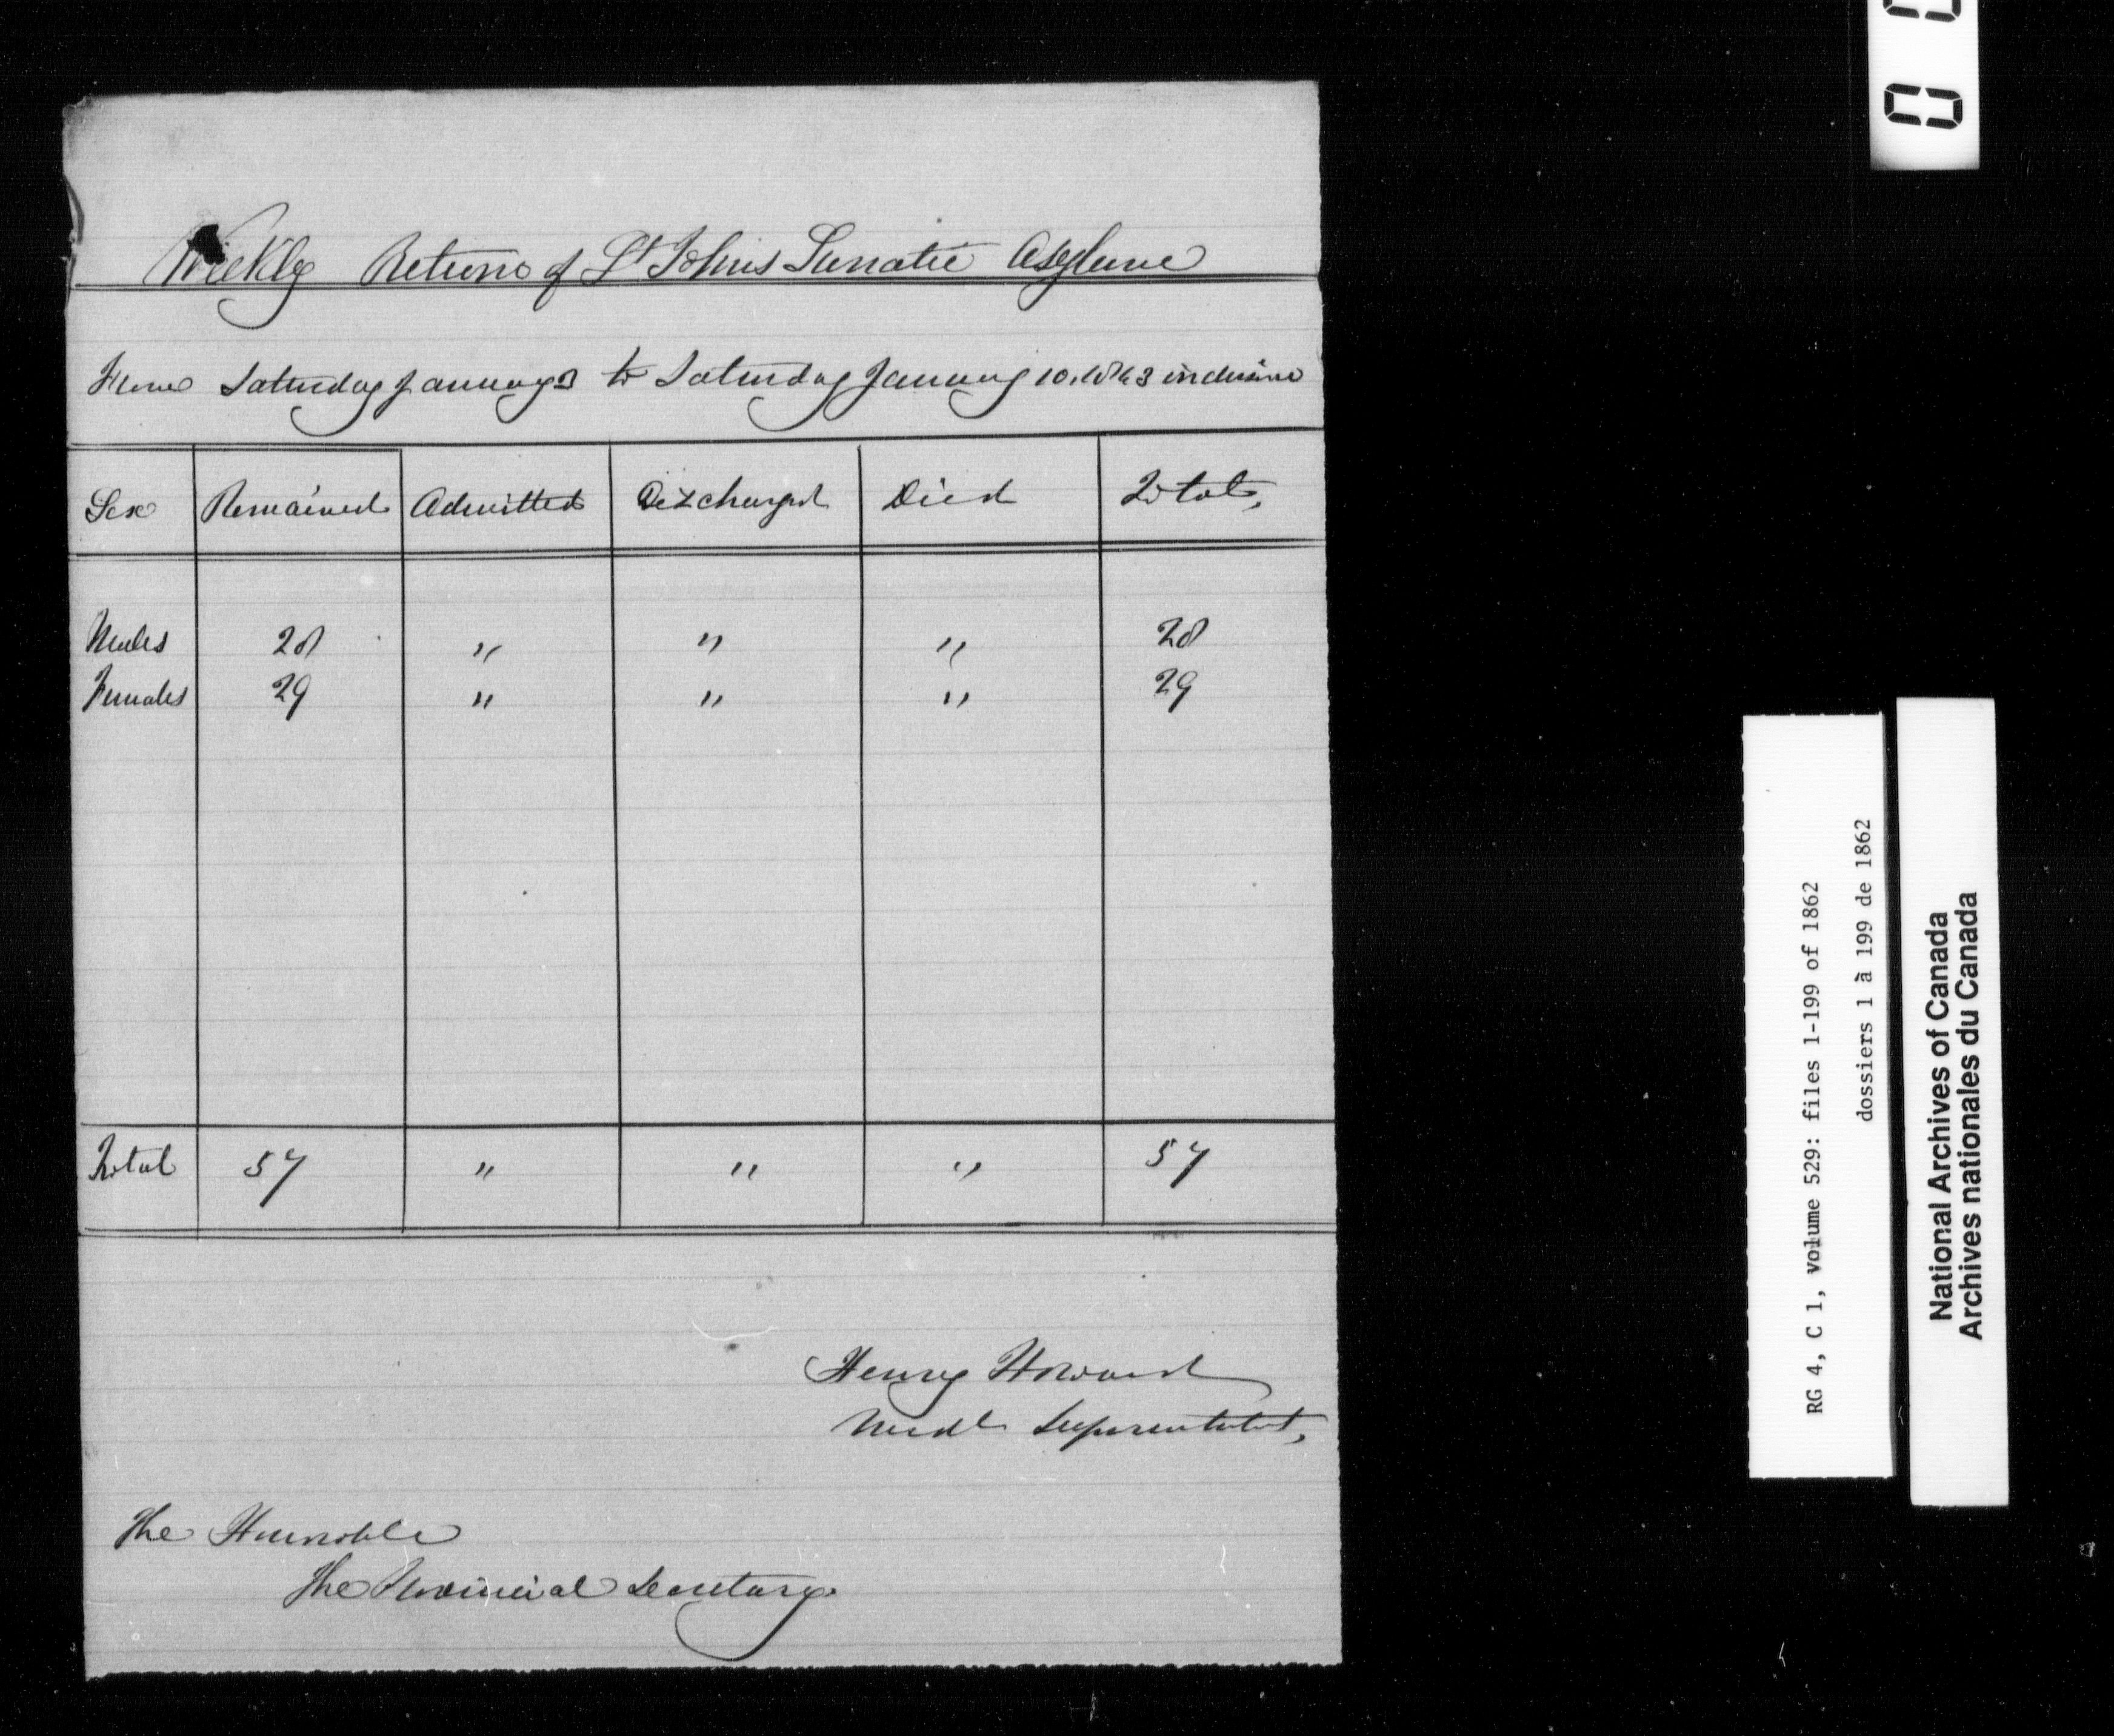 Weekly Returns of St Johns Lunatic Asylum
From Saturday January 3 to Saturday January 10. 1863 inclusive
Sex Remained Admitted Discharged Died Total,
Males 28 " " " 28
Females 29 " " " 29
Total 57 " " " 57
Henry Howard
Medl Superintdt,
The Hunoble
The Provincial Secretary
0
RG 4, C 1, volume 529: files 1-199 of 1862
dossiers 1 à 199 de 1862
National Archives of Canada
Archives nationales du Canada